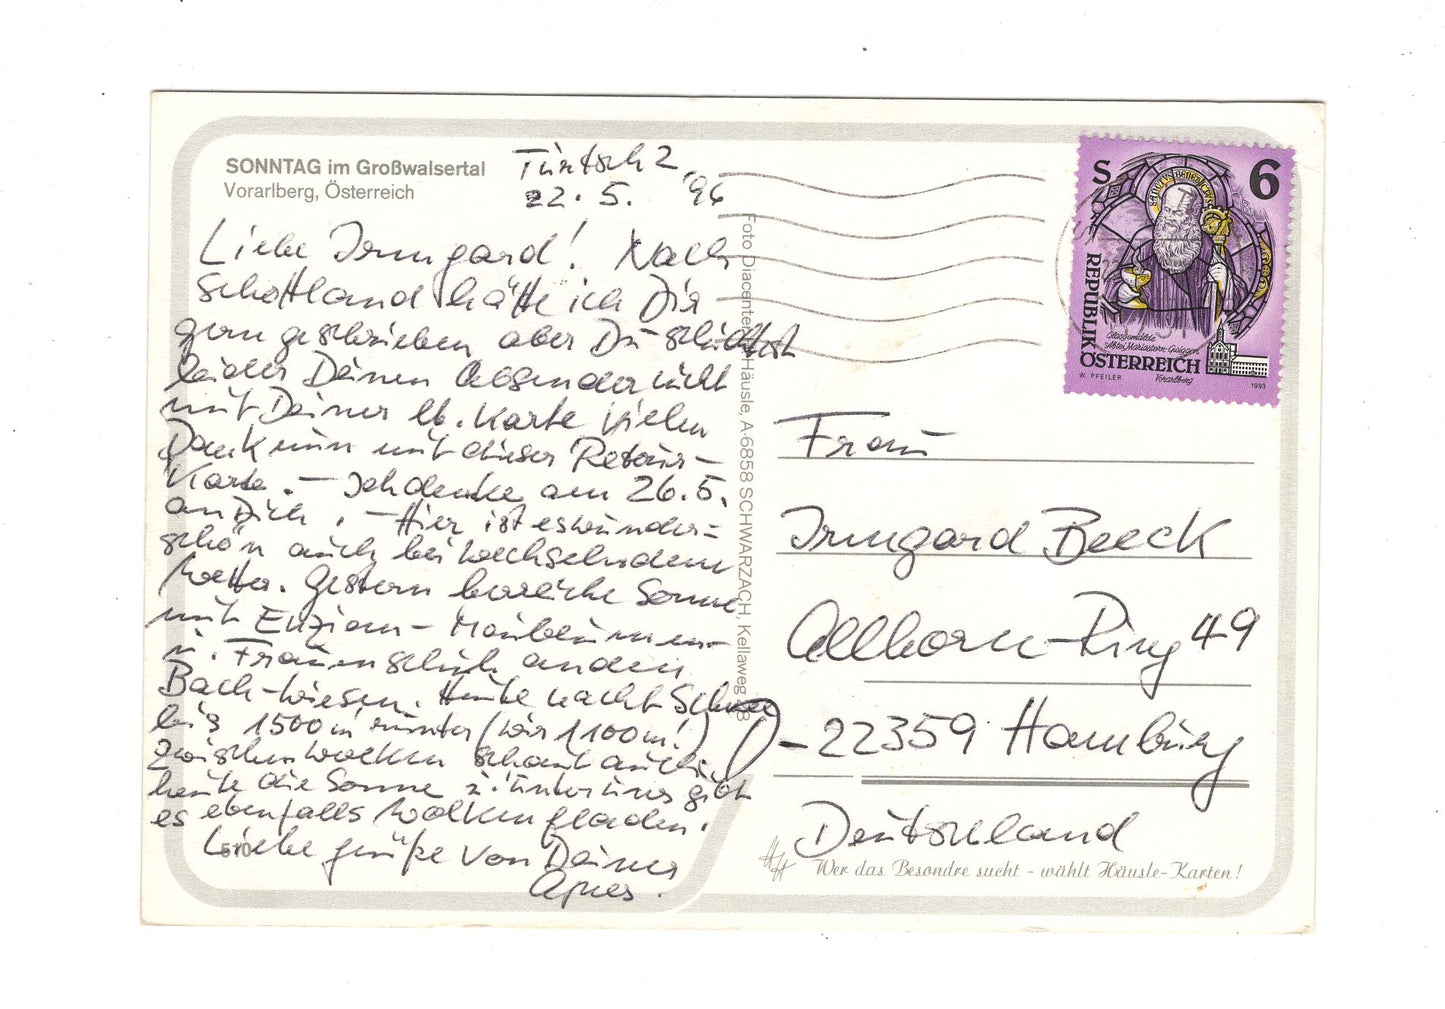 SONNTAG im Großwalsertal
Vorarlberg, Österreich
22. 5. '96
Liebe Irmgard! Nach
Schottland hätte ich Dir
gern geschrieben aber Du schicktest
leider Deinen Absender nicht
mit Deiner lb. Karte. Vielen
Dank nun mit dieser Retour-
Karte. – Ich denke am 26.5.
an Dich. – Hier ist es wunder=
schön auch bei wechselndem
Wetter. Gestern herrliche Sonne
mit Enzian- Maiblumen-
u. Frauenschuh an den
Bach-Wiesen. Heute nacht Schnee
bis 1500m runter (wir 1100m!)
zwischen Wolken schaut auch
heute die Sonne u. unter uns gibt
es ebenfalls Wolkenfladen.
Liebe Grüße von Deiner
Agnes.
Foto Diacenter Häusle, A-6858 SCHWARZACH, Kellaweg
S 6
SANCTVS BENEDICTVS
REPUBLIK
ÖSTERREICH
Glasgemälde
Abtei Mariastern-Gwiggen
Vorarlberg
W. PFEILER
1993
Frau
Irmgard Beeck
Allhorn-Ring 49
D-22359 Hamburg
Deutschland
HH
Wer das Besondre sucht - wählt Häusle-Karten!